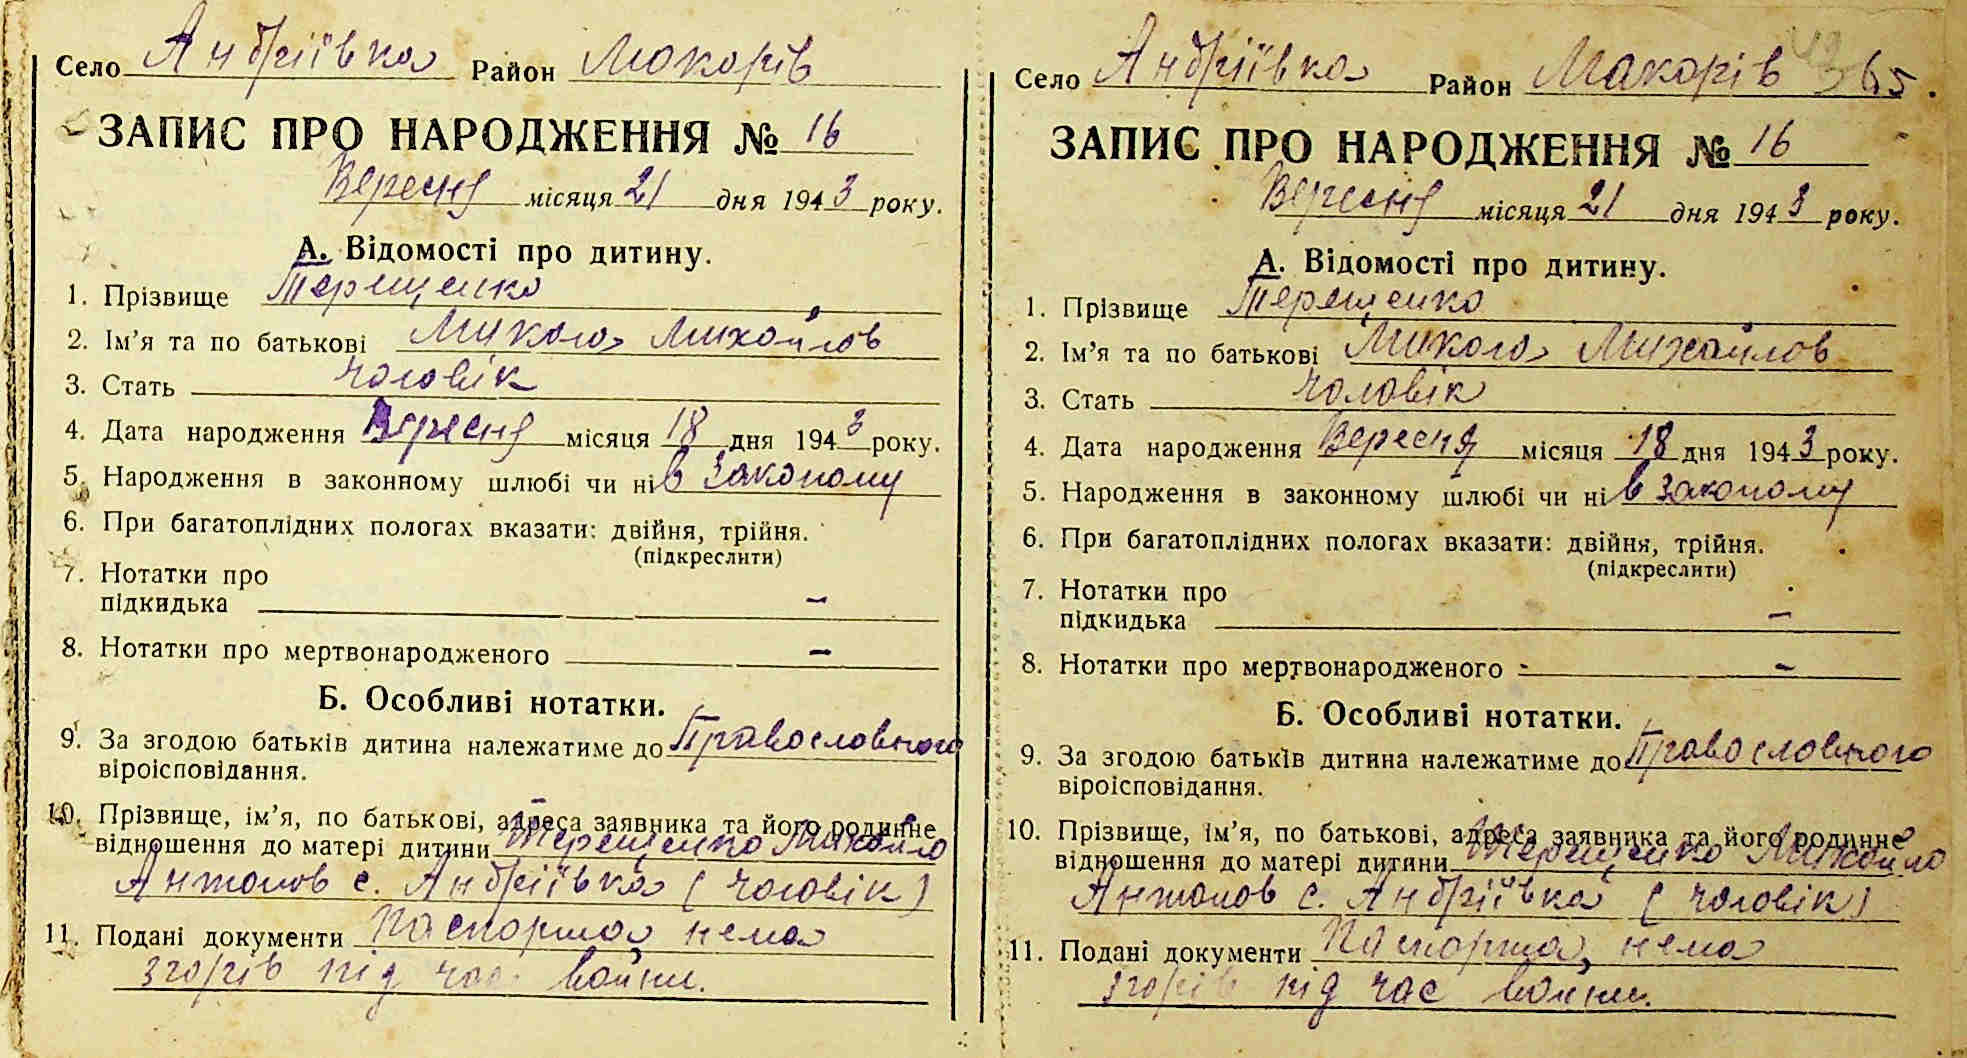 Село Андріївка Район Макорів
ЗАПИС ПРО НАРОДЖЕННЯ № 16
Вересня місяця 21 дня 1943 року.
А. Відомості про дитину.
1. Прізвище Терещенко
2. Ім'я та по батькові Микола Михайлов
3. Стать Чоловік
4. Дата народження Вересня місяця 18 дня 1943 року.
5. Народження в законному шлюбі чи ні в законому
6. При багатоплідних пологах вказати: двійня, трійня.
(підкреслити)
7. Нотатки про
підкидька –
8. Нотатки про мертвонародженого –
Б. Особливі нотатки.
9. За згодою батьків дитина належатиме до Православного
віроісповідання.
10. Прізвище, ім'я, по батькові, адреса заявника та його родинне
відношення до матері дитини Терещенко Михайло
Антонов с. Андріївка (чоловік)
11. Подані документи Паспорта нема
згорів під час войни.
Село Андріївка Район Макорів 365.
ЗАПИС ПРО НАРОДЖЕННЯ № 16
Вересня місяця 21 дня 1943 року.
А. Відомості про дитину.
1. Прізвище Терещенко
2. Ім'я та по батькові Микола Михайлов
3. Стать Чоловік
4. Дата народження Вересня місяця 18 дня 1943 року.
5. Народження в законному шлюбі чи ні в законому
6. При багатоплідних пологах вказати: двійня, трійня.
(підкреслити)
7. Нотатки про
підкидька –
8. Нотатки про мертвонародженого –
Б. Особливі нотатки.
9. За згодою батьків дитина належатиме до Православного
віроісповідання.
10. Прізвище, ім'я, по батькові, адреса заявника та його родинне
відношення до матері дитини Терещенко Михайло
Антонов с. Андріївка (чоловік)
11. Подані документи Паспорта нема
згорів під час войни.